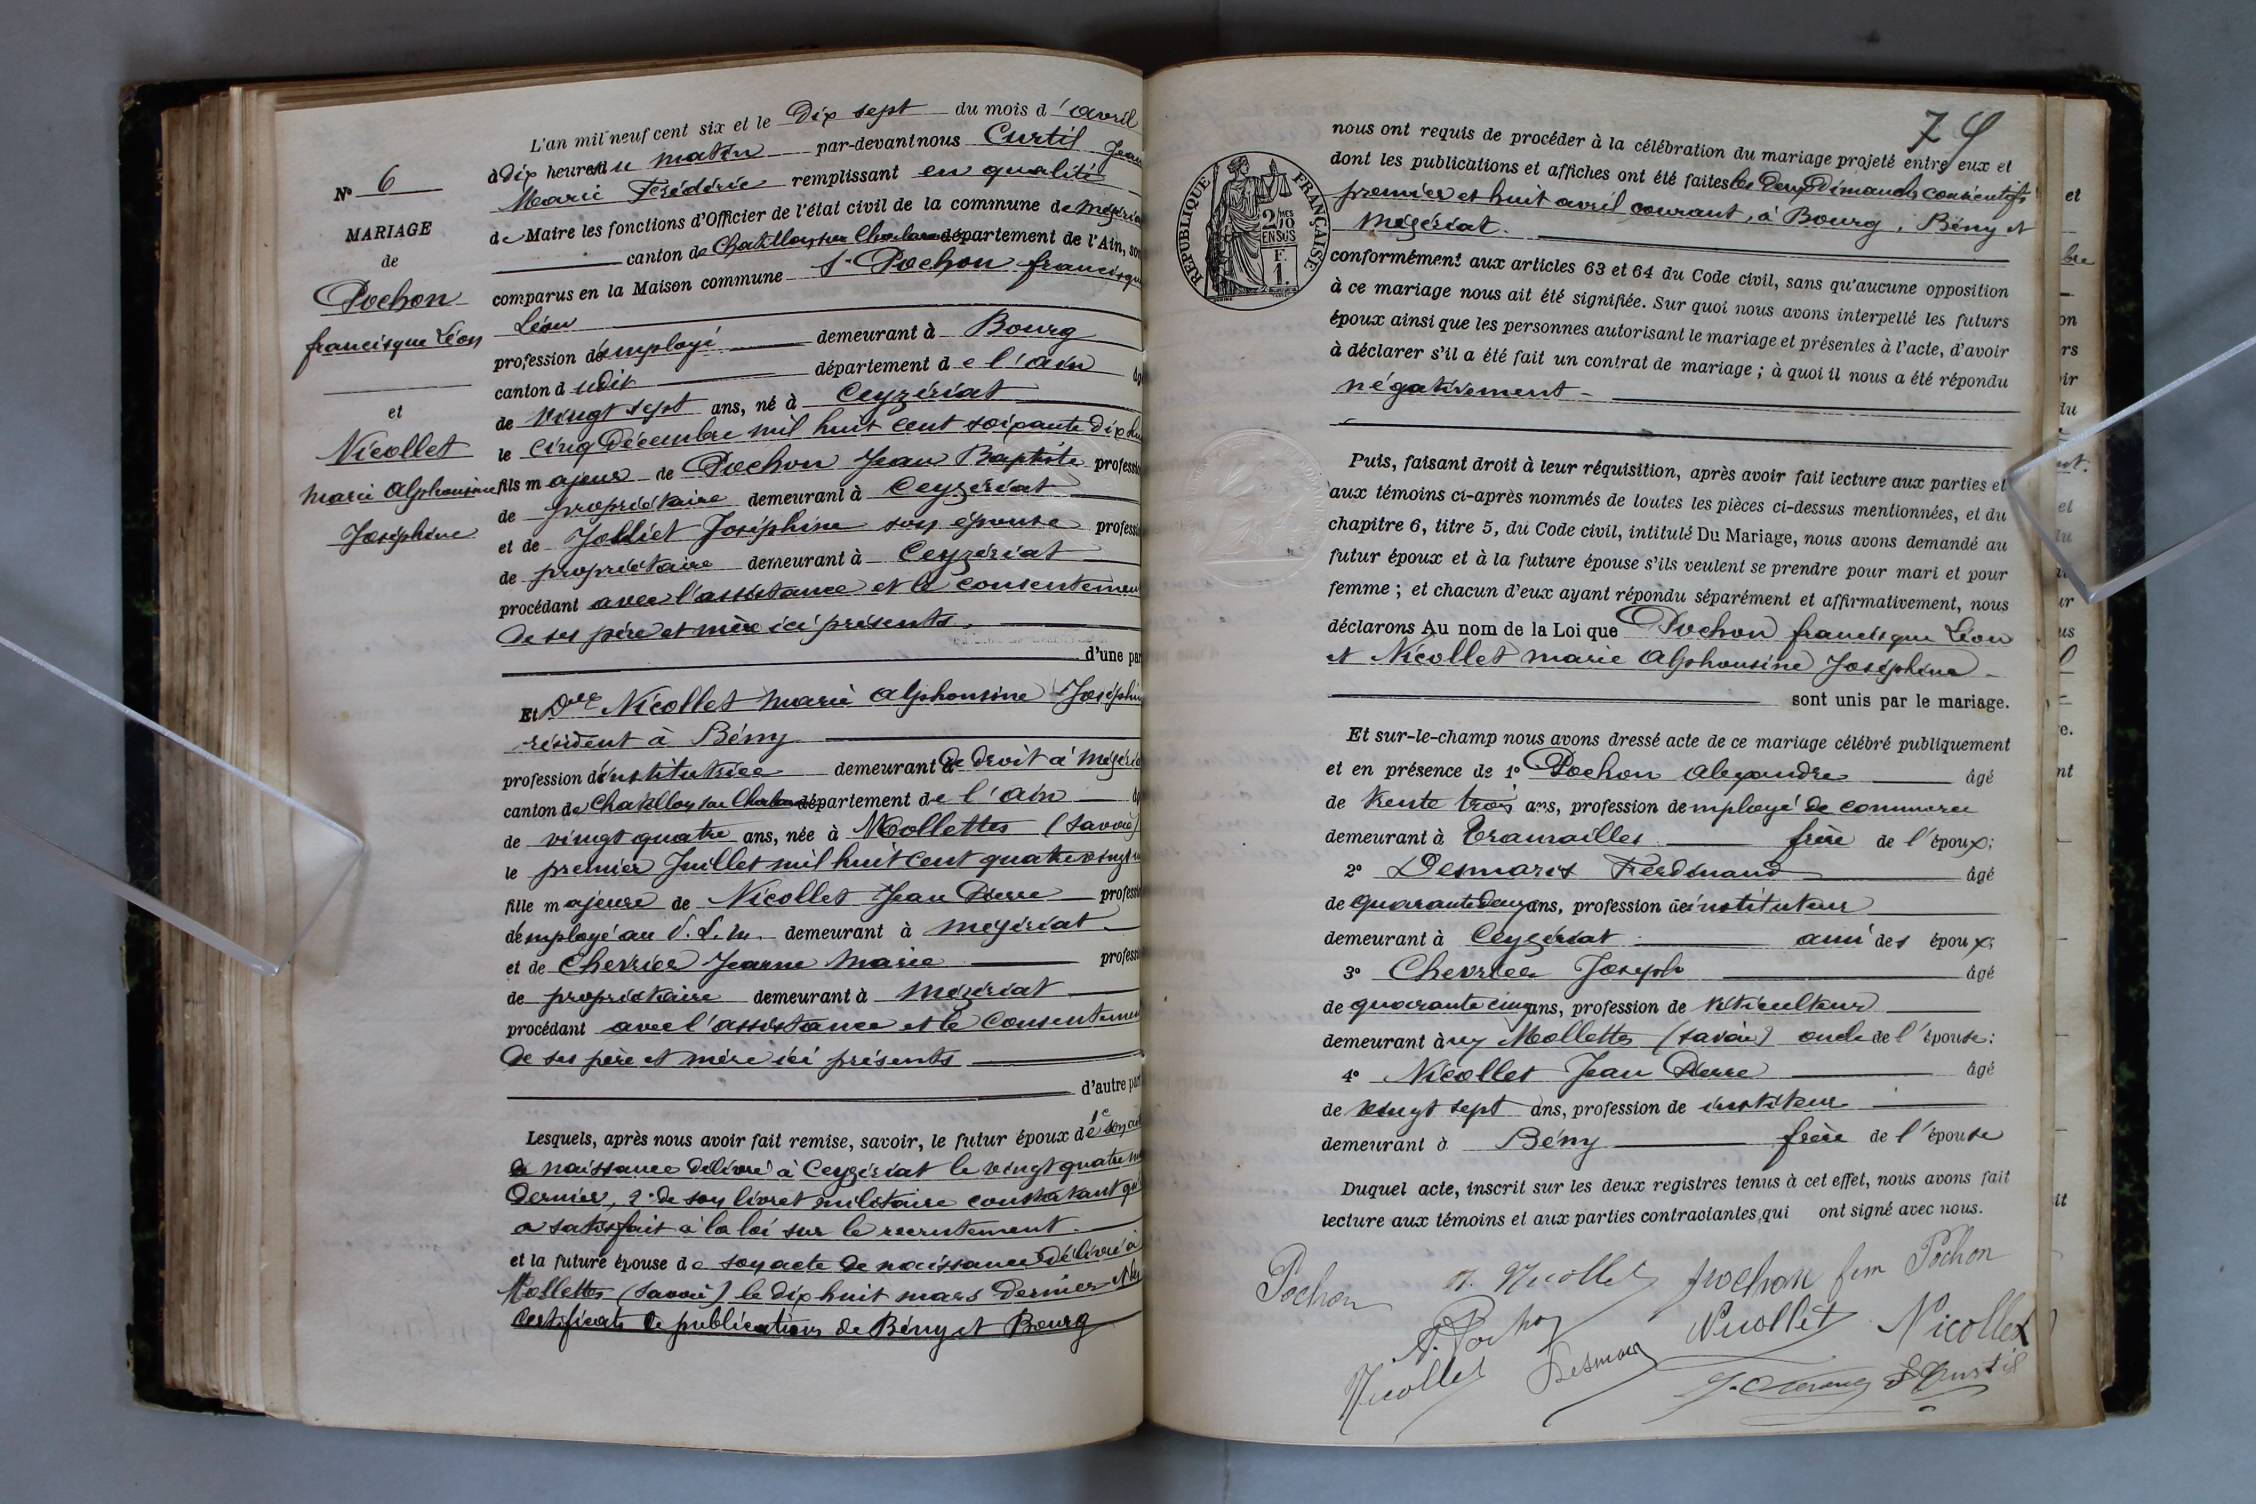 N° 6
MARIAGE
de
Pochon
francisque Léon
et
Nicollet
marie Alphonsine
Joséphine
L'an mil neuf cent six et le Dix sept du mois d'avril
à dix heures du matin par-devant nous Curtil Jean
Marie Frédéric remplissant en qualité
de Maire les fonctions d'Officier de l'état civil de la commune de Mézériat
canton de Chatillon sur Chalaronne département de l'Ain, sont
comparus en la Maison commune 1° Pochon francisque
Léon
profession d'employé demeurant à Bourg
canton dudit département de l'Ain
de vingt sept ans, né à Ceyzériat
le cinq Décembre mil huit cent soixante dix huit
fils majeur de Pochon Jean Baptiste profession
de propriétaire demeurant à Ceyzériat
et de Jolliet Joséphine son épouse profession
de propriétaire demeurant à Ceyzériat
procédant avec l'assistance et le consentement
de ses père et mère ici présents.
d'une part
Et Delle Nicollet marie Alphonsine Joséphine
résident à Bény
profession d'institutrice demeurant de droit à Mézériat
canton de Chatillon sur Chalaronne département de l'Ain
de vingt quatre ans, née à Mollettes (Savoie)
le premier Juillet mil huit cent quatre vingt un
fille majeure de Nicollet Jean Pierre profession
d'employé au P. L. M. demeurant à Mézériat
et de Chevrier Jeanne Marie profession
de propriétaire demeurant à Mézériat
procédant avec l'assistance et le consentement
de ses père et mère ici présents
d'autre part
Lesquels, après nous avoir fait remise, savoir, le futur époux de 1° son acte
de naissance délivré à Ceyzériat le vingt quatre mars
dernier, 2° de son livret militaire constatant qu'il
a satisfait à la loi sur le recrutement.
et la future épouse de son acte de naissance délivré à
Mollettes (Savoie) le dix huit mars dernier et les
certificats de publications de Bény et Bourg
74
nous ont requis de procéder à la célébration du mariage projeté entre eux et
dont les publications et affiches ont été faites les deux Dimanches consécutifs
premier et huit avril courant, à Bourg, Bény et
Mézériat.
RÉPUBLIQUE FRANÇAISE
2/10MES
EN SUS
F.
1.
conformément aux articles 63 et 64 du Code civil, sans qu'aucune opposition
à ce mariage nous ait été signifiée. Sur quoi nous avons interpellé les futurs
époux ainsi que les personnes autorisant le mariage et présentes à l'acte, d'avoir
à déclarer s'il a été fait un contrat de mariage ; à quoi il nous a été répondu
négativement
Puis, faisant droit à leur réquisition, après avoir fait lecture aux parties et
aux témoins ci-après nommés de toutes les pièces ci-dessus mentionnées, et du
chapitre 6, titre 5, du Code civil, intitulé Du Mariage, nous avons demandé au
futur époux et à la future épouse s'ils veulent se prendre pour mari et pour
femme ; et chacun d'eux ayant répondu séparément et affirmativement, nous
déclarons Au nom de la Loi que Pochon francisque Léon
et Nicollet marie Alphonsine Joséphine
sont unis par le mariage.
Et sur-le-champ nous avons dressé acte de ce mariage célébré publiquement
et en présence de 1° Pochon Alexandre âgé
de trente trois ans, profession d'employé de commerce
demeurant à Tramailles frère de l'époux;
2° Desmaris Ferdinand âgé
de quarante deux ans, profession d'instituteur
demeurant à Ceyzériat ami des époux;
3° Chevrier Joseph âgé
de quarante cinq ans, profession de viticulteur
demeurant aux Mollettes (Savoie) oncle de l'épouse;
4° Nicollet Jean Pierre âgé
de vingt sept ans, profession de instituteur
demeurant à Bény frère de l'épouse
Duquel acte, inscrit sur les deux registres tenus à cet effet, nous avons fait
lecture aux témoins et aux parties contractantes, qui ont signé avec nous.
Pochon M. Nicollet Pochon fem Pochon
A. Pochon Nicollet Nicollet
Nicollet Desmaris F Curtil